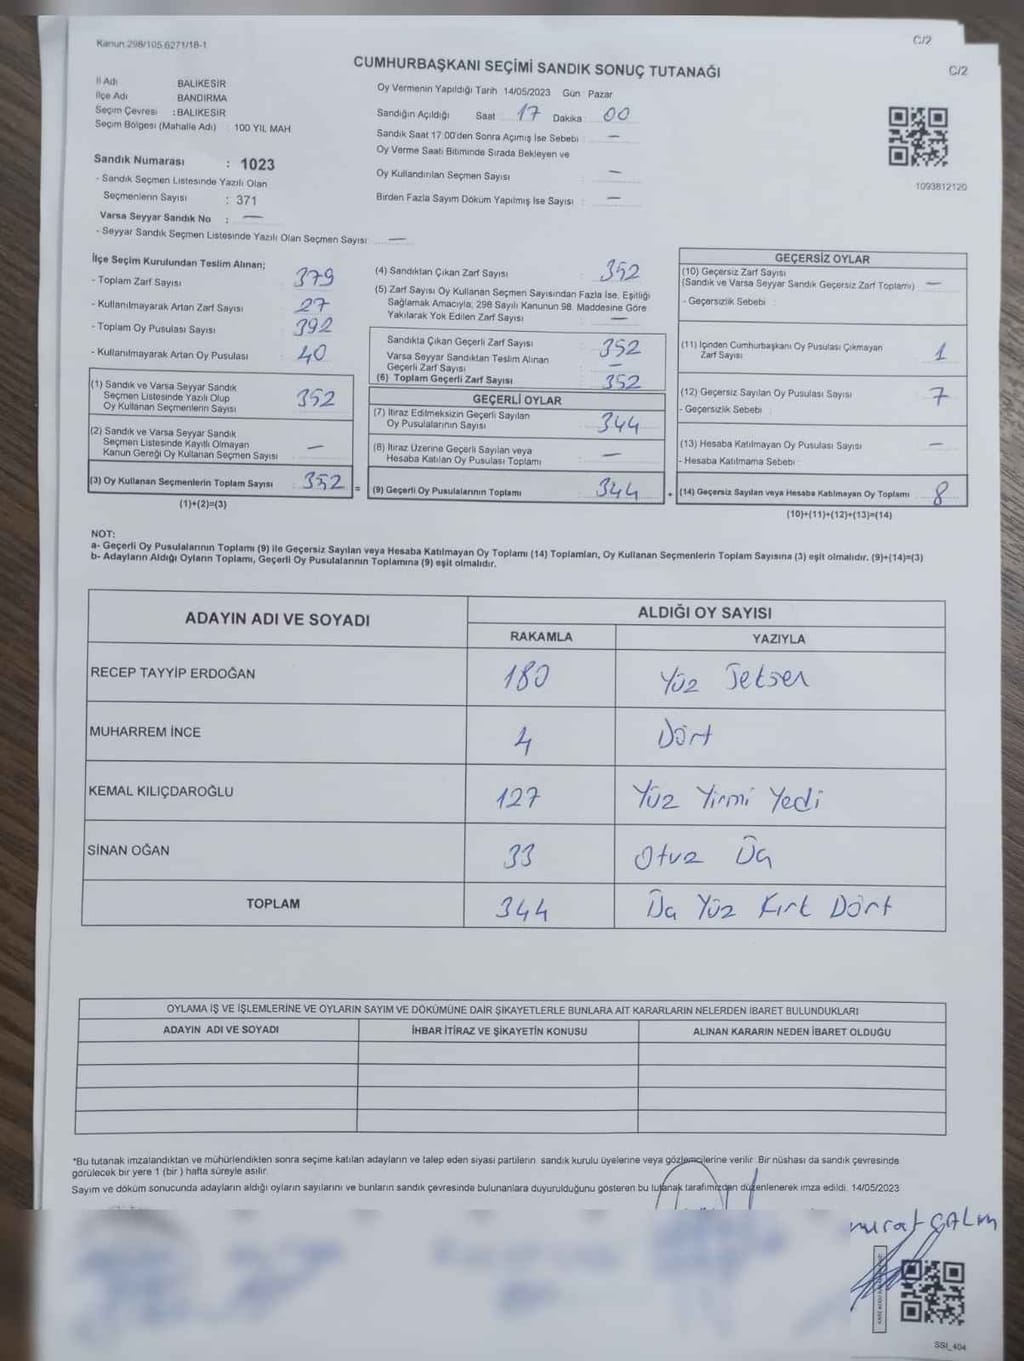 Kanun 298/105 6271/18-1
C/2
C/2
CUMHURBAŞKANI SEÇİMİ SANDIK SONUÇ TUTANAĞI
İl Adı BALIKESİR
İlçe Adı BANDIRMA
Seçim Çevresi : BALIKESİR
Seçim Bölgesi (Mahalle Adı) : 100 YIL MAH
Oy Vermenin Yapıldığı Tarih 14/05/2023 Gün : Pazar
Sandığın Açıldığı Saat 17 Dakika : 00
Sandık Saat 17:00'den Sonra Açılmış İse Sebebi : —
Oy Verme Saati Bitiminde Sırada Bekleyen ve
Oy Kullandırılan Seçmen Sayısı —
Birden Fazla Sayım Döküm Yapılmış İse Sayısı : —
1093812120
Sandık Numarası : 1023
- Sandık Seçmen Listesinde Yazılı Olan
Seçmenlerin Sayısı : 371
Varsa Seyyar Sandık No : —
- Seyyar Sandık Seçmen Listesinde Yazılı Olan Seçmen Sayısı: —
İlçe Seçim Kurulundan Teslim Alınan;
- Toplam Zarf Sayısı 379
- Kullanılmayarak Artan Zarf Sayısı 27
- Toplam Oy Pusulası Sayısı 392
- Kullanılmayarak Artan Oy Pusulası 40
(1) Sandık ve Varsa Seyyar Sandık
Seçmen Listesinde Yazılı Olup
Oy Kullanan Seçmenlerin Sayısı 352
(2) Sandık ve Varsa Seyyar Sandık
Seçmen Listesinde Kayıtlı Olmayan
Kanun Gereği Oy Kullanan Seçmen Sayısı —
(3) Oy Kullanan Seçmenlerin Toplam Sayısı 352 =
(1)+(2)=(3)
(4) Sandıktan Çıkan Zarf Sayısı 352
(5) Zarf Sayısı Oy Kullanan Seçmen Sayısından Fazla İse, Eşitliği
Sağlamak Amacıyla; 298 Sayılı Kanunun 98. Maddesine Göre
Yakılarak Yok Edilen Zarf Sayısı : —
Sandıkta Çıkan Geçerli Zarf Sayısı 352
Varsa Seyyar Sandıktan Teslim Alınan
Geçerli Zarf Sayısı —
(6) Toplam Geçerli Zarf Sayısı 352
GEÇERLİ OYLAR
(7) İtiraz Edilmeksizin Geçerli Sayılan
Oy Pusulalarının Sayısı 344
(8) İtiraz Üzerine Geçerli Sayılan veya
Hesaba Katılan Oy Pusulası Toplamı —
(9) Geçerli Oy Pusulalarının Toplamı 344 +
GEÇERSİZ OYLAR
(10) Geçersiz Zarf Sayısı
(Sandık ve Varsa Seyyar Sandık Geçersiz Zarf Toplamı) —
- Geçersizlik Sebebi :
(11) İçinden Cumhurbaşkanı Oy Pusulası Çıkmayan
Zarf Sayısı 1
(12) Geçersiz Sayılan Oy Pusulası Sayısı 7
- Geçersizlik Sebebi :
(13) Hesaba Katılmayan Oy Pusulası Sayısı —
- Hesaba Katılmama Sebebi :
(14) Geçersiz Sayılan veya Hesaba Katılmayan Oy Toplamı 8
(10)+(11)+(12)+(13)=(14)
NOT:
a- Geçerli Oy Pusulalarının Toplamı (9) ile Geçersiz Sayılan veya Hesaba Katılmayan Oy Toplamı (14) Toplamları, Oy Kullanan Seçmenlerin Toplam Sayısına (3) eşit olmalıdır. (9)+(14)=(3)
b- Adayların Aldığı Oyların Toplamı, Geçerli Oy Pusulalarının Toplamına (9) eşit olmalıdır.
ADAYIN ADI VE SOYADI ALDIĞI OY SAYISI
RAKAMLA YAZIYLA
RECEP TAYYİP ERDOĞAN 180 Yüz Seksen
MUHARREM İNCE 4 Dört
KEMAL KILIÇDAROĞLU 127 Yüz Yirmi Yedi
SİNAN OĞAN 33 Otuz Üç
TOPLAM 344 Üç Yüz Kırk Dört
OYLAMA İŞ VE İŞLEMLERİNE VE OYLARIN SAYIM VE DÖKÜMÜNE DAİR ŞİKAYETLERLE BUNLARA AİT KARARLARIN NELERDEN İBARET BULUNDUKLARI
ADAYIN ADI VE SOYADI İHBAR İTİRAZ VE ŞİKAYETİN KONUSU ALINAN KARARIN NEDEN İBARET OLDUĞU
*Bu tutanak imzalandıktan ve mühürlendikten sonra seçime katılan adayların ve talep eden siyasi partilerin sandık kurulu üyelerine veya gözlemcilerine verilir. Bir nüshası da sandık çevresinde
görülecek bir yere 1 (bir) hafta süreyle asılır.
Sayım ve döküm sonucunda adayların aldığı oyların sayılarını ve bunların sandık çevresinde bulunanlara duyurulduğunu gösteren bu tutanak tarafımızdan düzenlenerek imza edildi. 14/05/2023
SSI_404